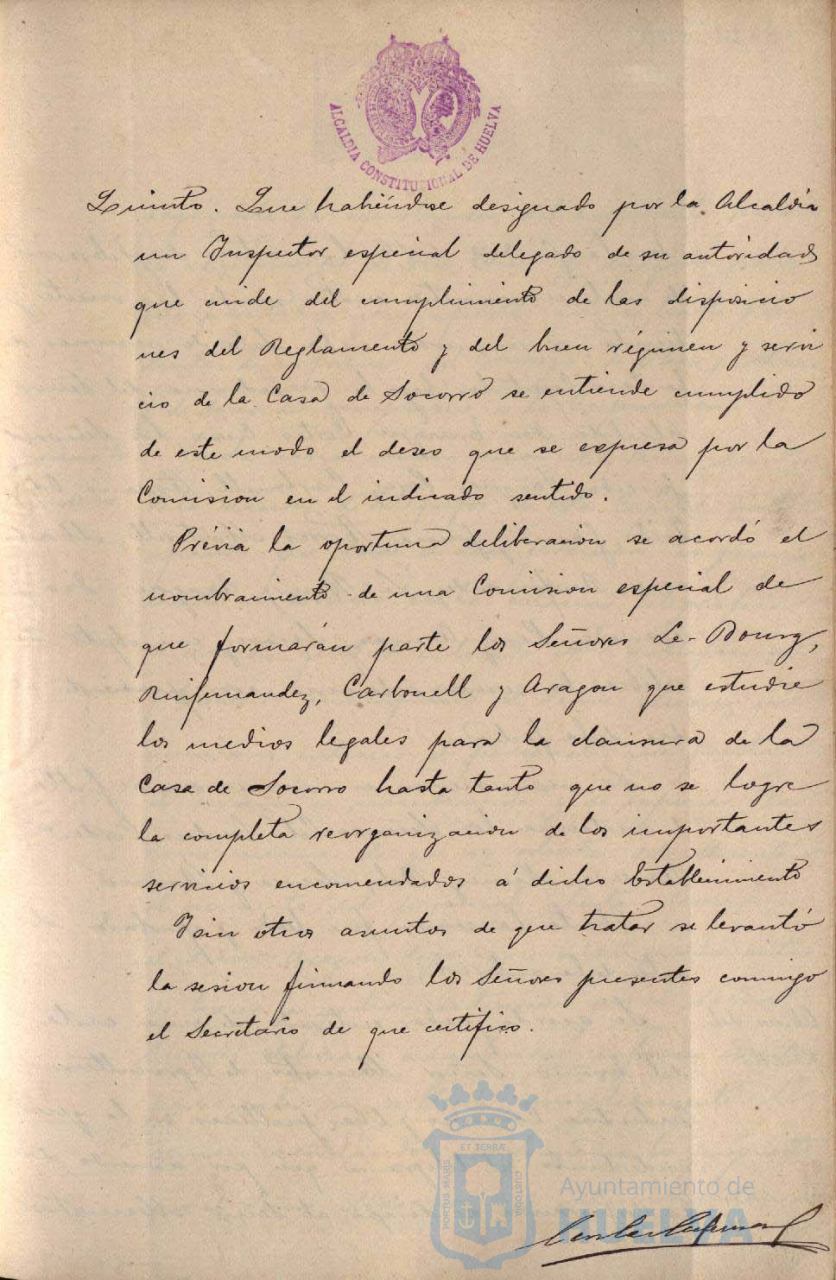 ALCALDIA CONSTITUCIONAL DE HUELVA
Quinto. Que habiéndose designado por la Alcaldia
un Inspector especial delegado de su autoridad
que cuide del cumplimiento de las disposicio
nes del Reglamento y del buen régimen y servi
cio de la Casa de Socorro se entiende cumplido
de este modo el deseo que se expresa por la
Comision en el indicado sentido.
Prévia la oportuna deliberacion se acordó el
nombramiento de una Comision especial de
que formarán parte los Señores Le-Bourg,
Ruifernandez, Carbonell y Aragon que estudie
los medios legales para la clausura de la
Casa de Socorro hasta tanto que no se logre
la completa reorganizacion de los importantes
servicios encomendados á dicho Establecimiento
Y sin otros asuntos de que tratar se levantó
la sesion firmando los Señores presentes conmigo
el Secretario de que certifico.
ET TERRÆ
PORTUS MARIS
CUSTODIA
Ayuntamiento de
HUELVA